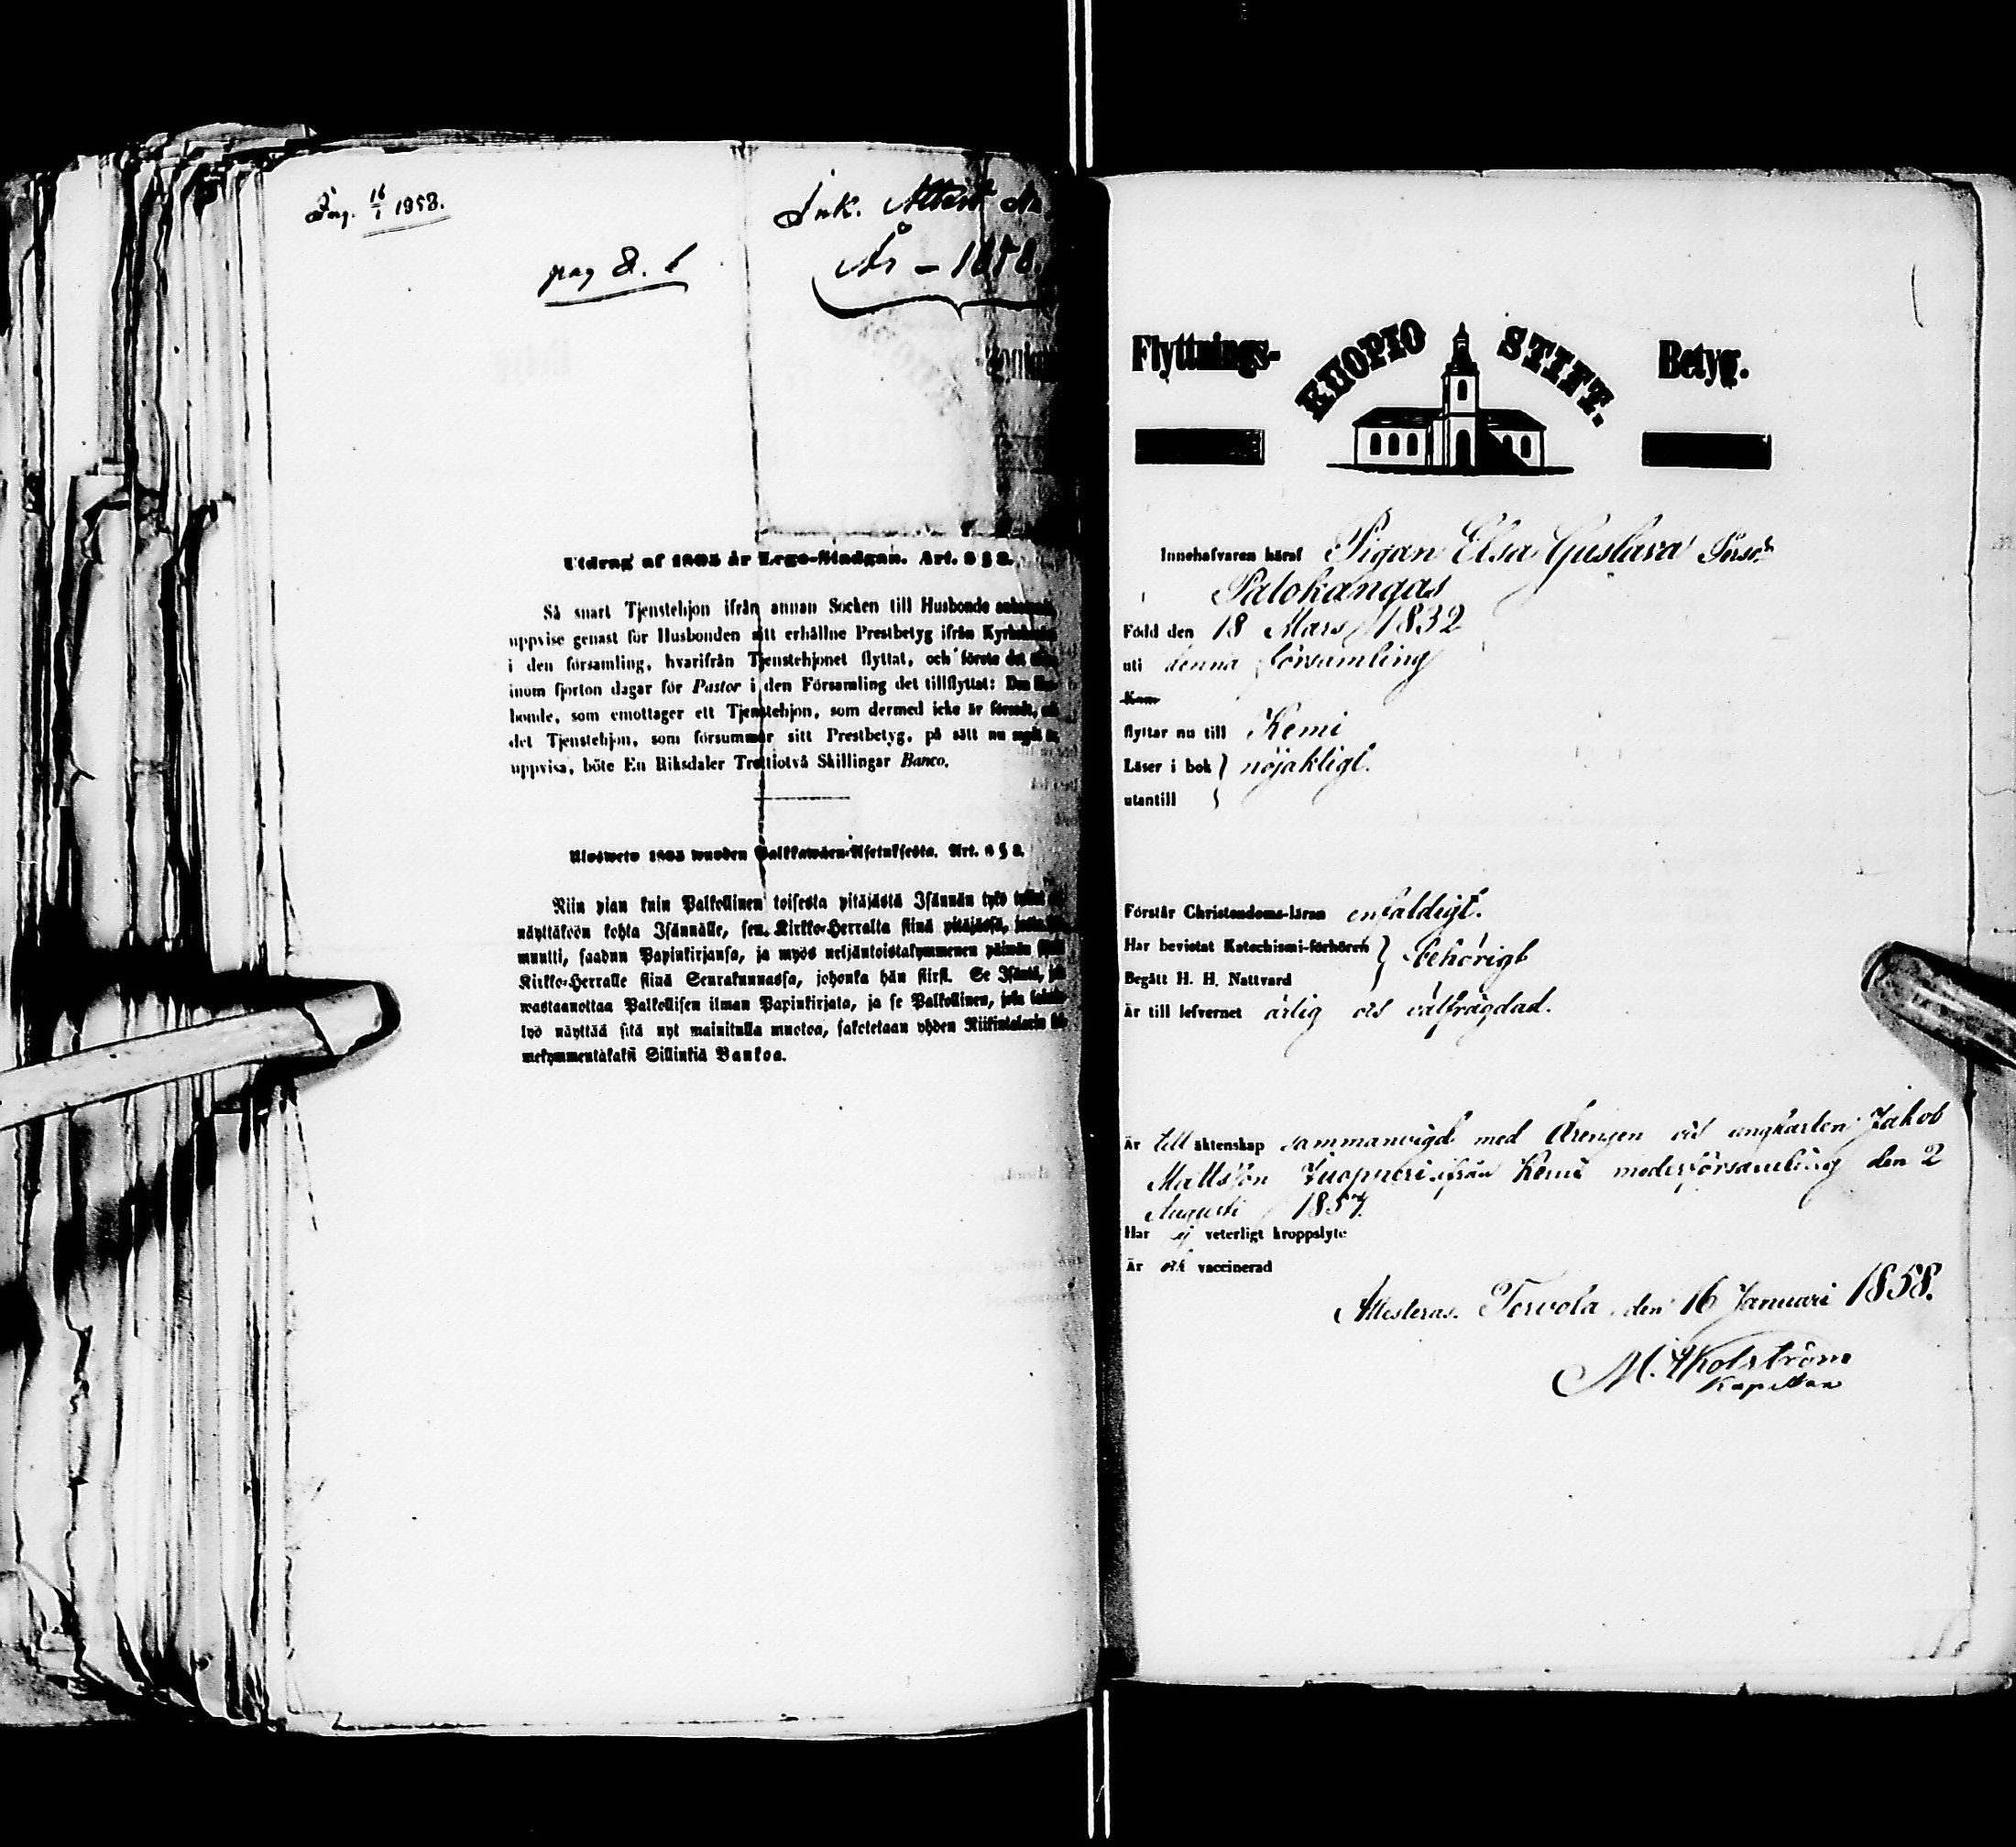 Ing. 16/1 1858.
Ink. Attest
År - 1858.
pag 8.
Utdrag af 1805 år Lego-Stadgan. Art. 6 § 8.
Så snart Tjenstehjon ifrån annan Socken till Husbonde
uppvise genast för Husbonden sitt erhållne Prestbetyg ifrån
i den församling, hvarifrån Tjenstehjonet flyttat, och förete det
inom fjorton dagar för Pastor i den Församling det tillflyttat: Den
bonde, som emottager ett Tjenstehjon, som dermed icke är försedt,
det Tjenstehjon, som försummar sitt Prestbetyg, på sätt nu sagdt är,
uppvisa, böte En Riksdaler Trettiotvå Skillingar Banco.
Ulosweto 1805 wuoden Palkkawäen-Asetuksesta. Art. 6 § 8.
Niin pian kuin Palkollinen toisesta pitäjästä Isännän tykö
näyttäköön kohta Isännälle, sen Kirkko-Herralta siinä pitäjässä,
muutti, saadun Papinkirjansa, ja myös neljäntoistakymmenen päiwän
Kirkko-Herralle siinä Seurakunnassa, johonka hän siirsi. Se Isäntä,
wastaanottaa Palkollisen ilman Papinkirjata, ja se Palkollinen, joka
lyö näyttää sitä nyt mainitulla muotoa, sakotetaan yhden Riikintalarin
mekymmentäkaksi Sillinkiä Bankoa.
Flyttnings- KUOPIO STIFT. Betyg.
Innehafvaren häraf Pigan Elsa Gustava
Palokangas
Född den 18 Mars 1832
uti denna församling
Kom
flyttar nu till Kemi
Läser i bok } nöjaktligt.
utantill
Förstår Christendoms-läran enfaldigt.
Har bevistat Katechismi-förhören } behörigt
Begått H. H. Nattvard
Är till lefvernet ärlig och välfrägdad.
Är till äktenskap sammanvigd med Drengen och ungkarlen Jakob
Mattsson ifrån Kemi moderförsamling den 2
Augusti 1857.
Har ej veterligt kroppslyte
Är och vaccinerad
Attesteras. Tervola den 16 Januari 1858.
M.
Kapellan